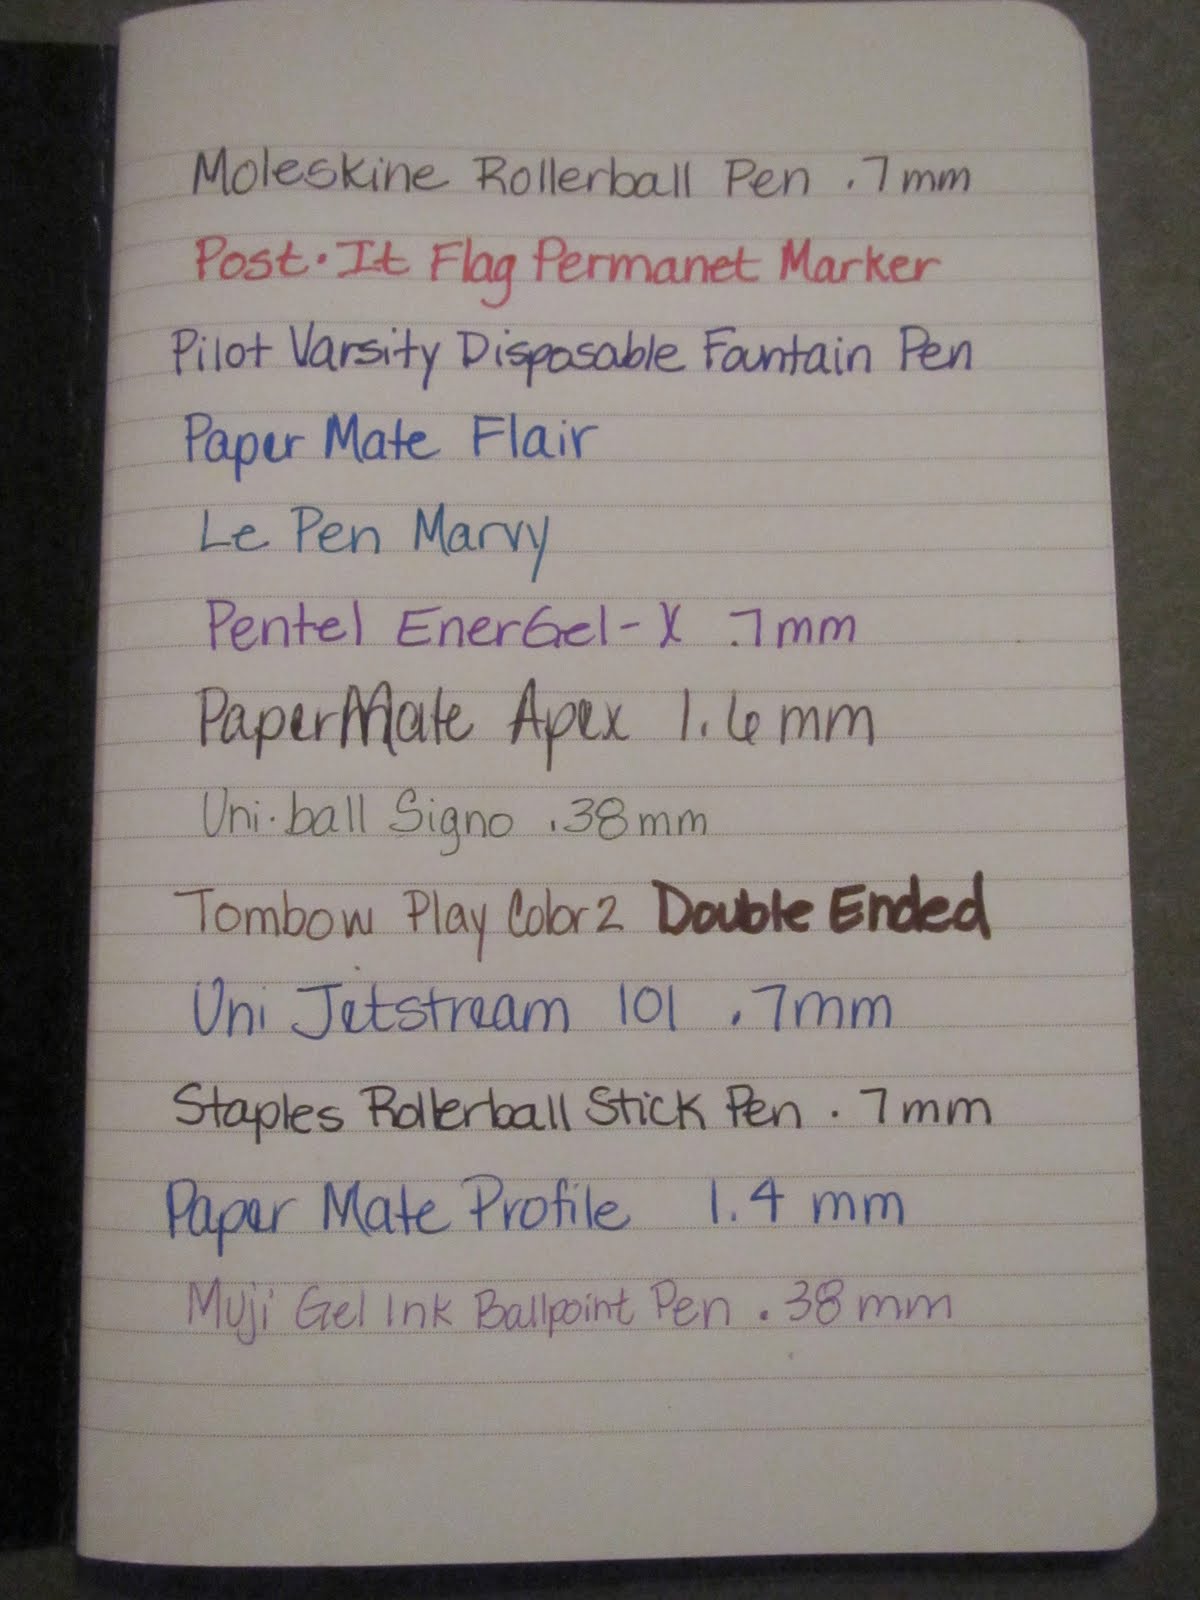 Moleskine Rollerball Pen .7mm
Post·It Flag Permanet Marker
Pilot Varsity Disposable Fountain Pen
Paper Mate Flair
Le Pen Marvy
Pentel EnerGel-X .7mm
PaperMate Apex 1.6mm
Uni·ball Signo .38mm
Tombow Play Color2 Double Ended
Uni Jetstream 101 .7mm
Staples Rollerball Stick Pen .7mm
Paper Mate Profile 1.4 mm
Muji Gel Ink Ballpoint Pen .38mm